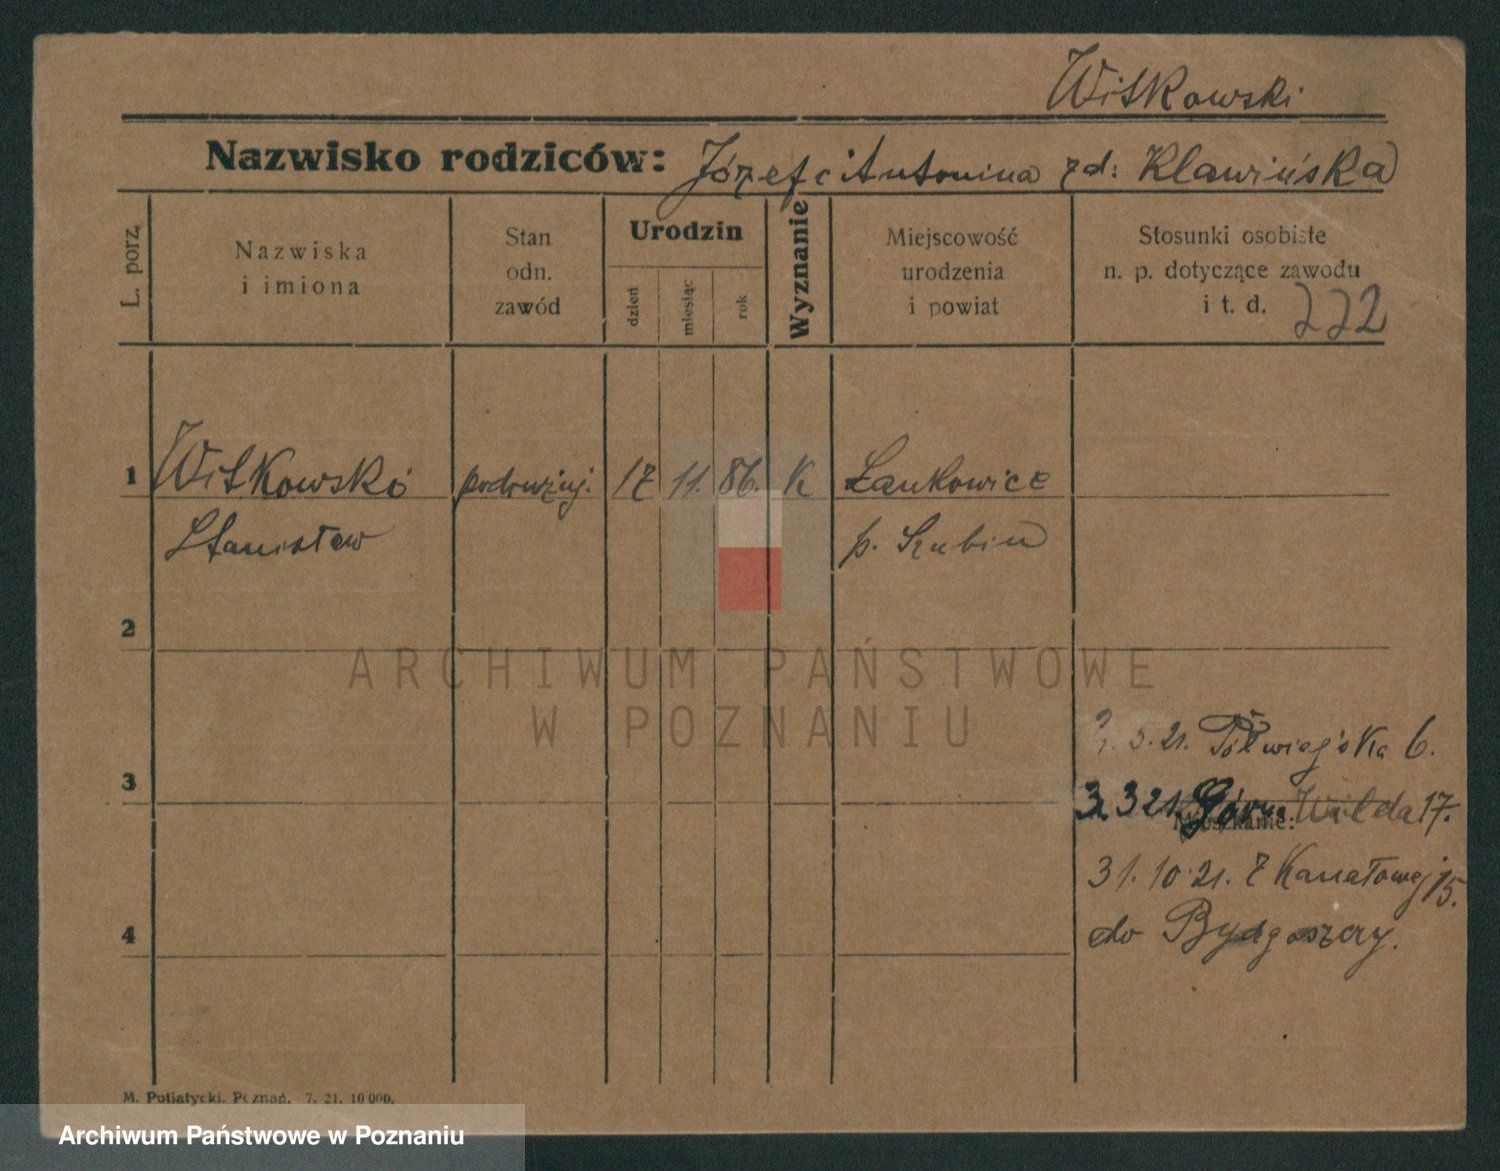 Witkowski
Nazwisko rodziców: Józef i Antonina zd: Klawińska
L. porz.
Nazwiska
i imiona
Stan
odn.
zawód
Urodzin
dzień
miesiąc
rok
Wyznanie
Miejscowość
urodzenia
i powiat
Stosunki osobiste
n. p. dotyczące zawodu
i t. d. 222
1 Witkowski 17 11. 86. K Łankowice
Stanisław p. Szubin
2
ARCHIWUM PAŃSTWOWE
W POZNANIU
5. 21. Półwiejska 6.
3
3. 3 21. Górna Wilda 17.
Mieszkanie:
31. 10. 21. z Kanałowej 15.
4
do Bydgoszczy.
M. Putiatycki, Poznań. 7. 21. 10 000.
Archiwum Państwowe w Poznaniu